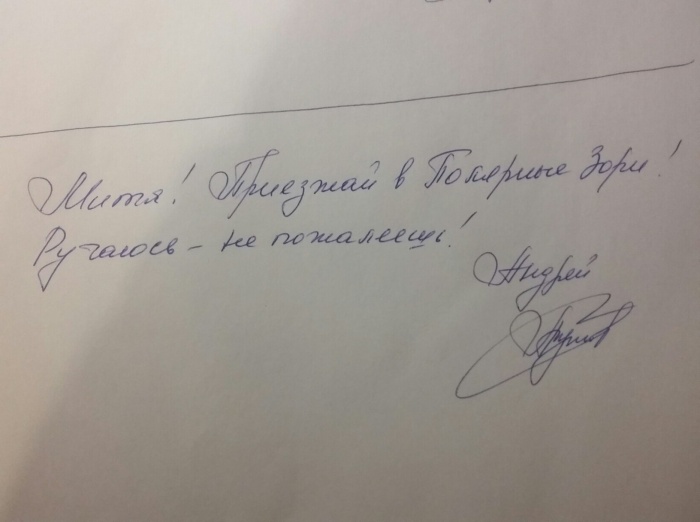 Митя! Приезжай в Полярные Зори!
Ручаюсь - не пожалеешь!
Андрей